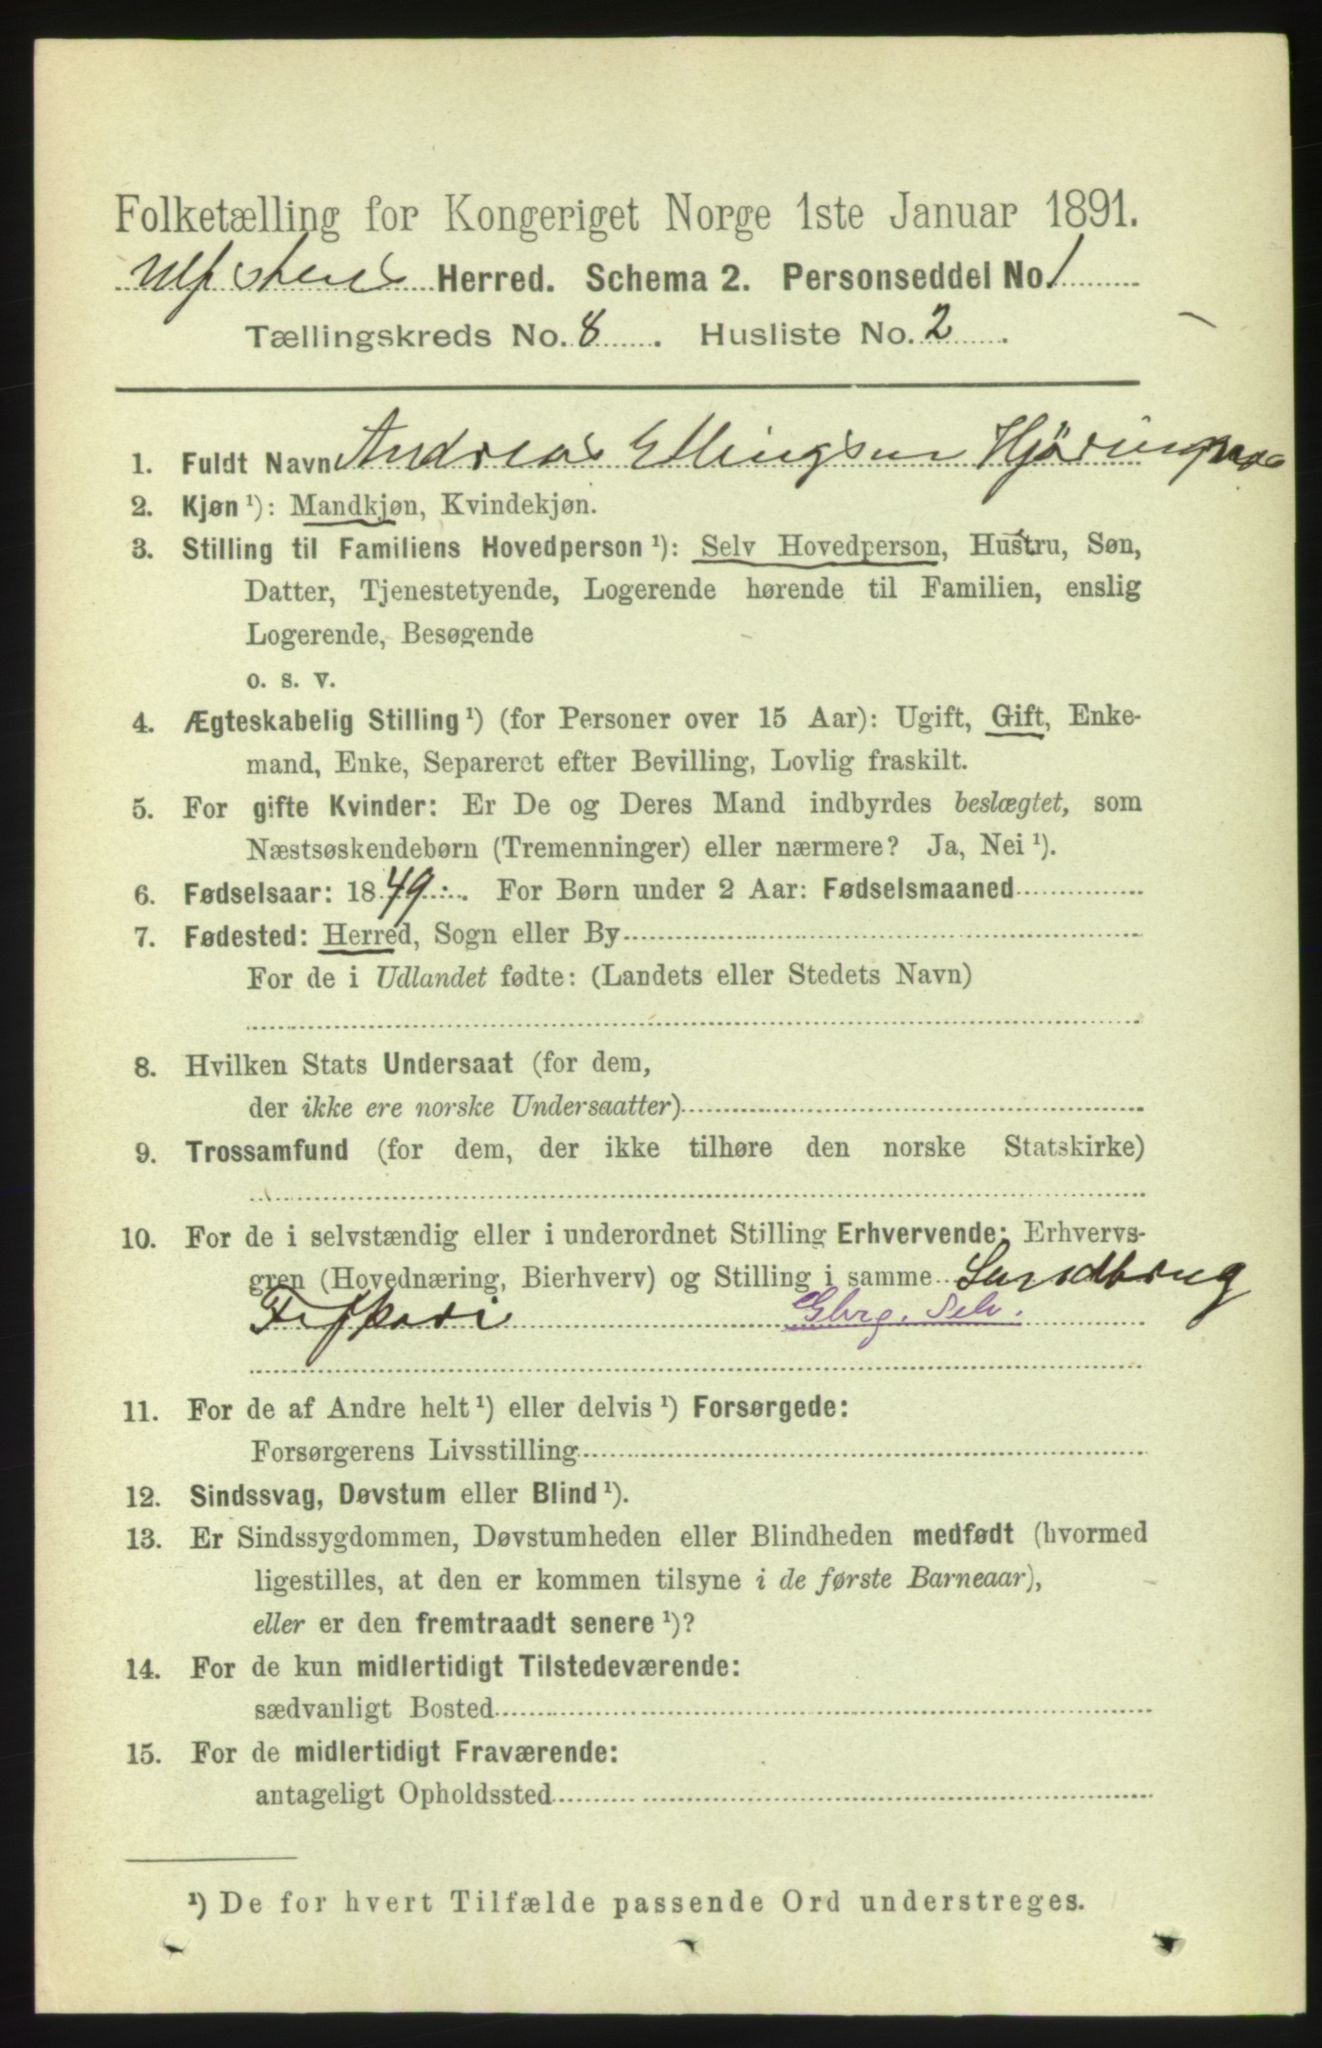 Folketælling for Kongeriget Norge 1ste Januar 1891.
Ulfstens Herred. Schema 2. Personseddel No. 1
Tællingskreds No. 8. Husliste No. 2.
1. Fuldt Navn Andreas Ellingsen Hjøringnæs
2. Kjøn ¹): Mandkjøn, Kvindekjøn.
3. Stilling til Familiens Hovedperson ¹): Selv Hovedperson, Hustru, Søn,
Datter, Tjenestetyende, Logerende hørende til Familien, enslig
Logerende, Besøgende
o. s. v.
4. Ægteskabelig Stilling ¹) (for Personer over 15 Aar): Ugift, Gift, Enke-
mand, Enke, Separeret efter Bevilling, Lovlig fraskilt.
5. For gifte Kvinder: Er De og Deres Mand indbyrdes beslægtet, som
Næstsøskendebørn (Tremenninger) eller nærmere? Ja, Nei ¹).
6. Fødselsaar: 1849. For Børn under 2 Aar: Fødselsmaaned
7. Fødested: Herred, Sogn eller By
For de i Udlandet fødte: (Landets eller Stedets Navn)
8. Hvilken Stats Undersaat (for dem,
der ikke ere norske Undersaatter)
9. Trossamfund (for dem, der ikke tilhøre den norske Statskirke)
10. For de i selvstændig eller i underordnet Stilling Erhvervende: Erhvervs-
gren (Hovednæring, Bierhverv) og Stilling i samme
Gbrg. Selv.
11. For de af Andre helt ¹) eller delvis ¹) Forsørgede:
Forsørgerens Livsstilling
12. Sindssvag, Døvstum eller Blind ¹).
13. Er Sindssygdommen, Døvstumheden eller Blindheden medfødt (hvormed
ligestilles, at den er kommen tilsyne i de første Barneaar),
eller er den fremtraadt senere ¹)?
14. For de kun midlertidigt Tilstedeværende:
sædvanligt Bosted
15. For de midlertidigt Fraværende:
antageligt Opholdssted
¹) De for hvert Tilfælde passende Ord understreges.